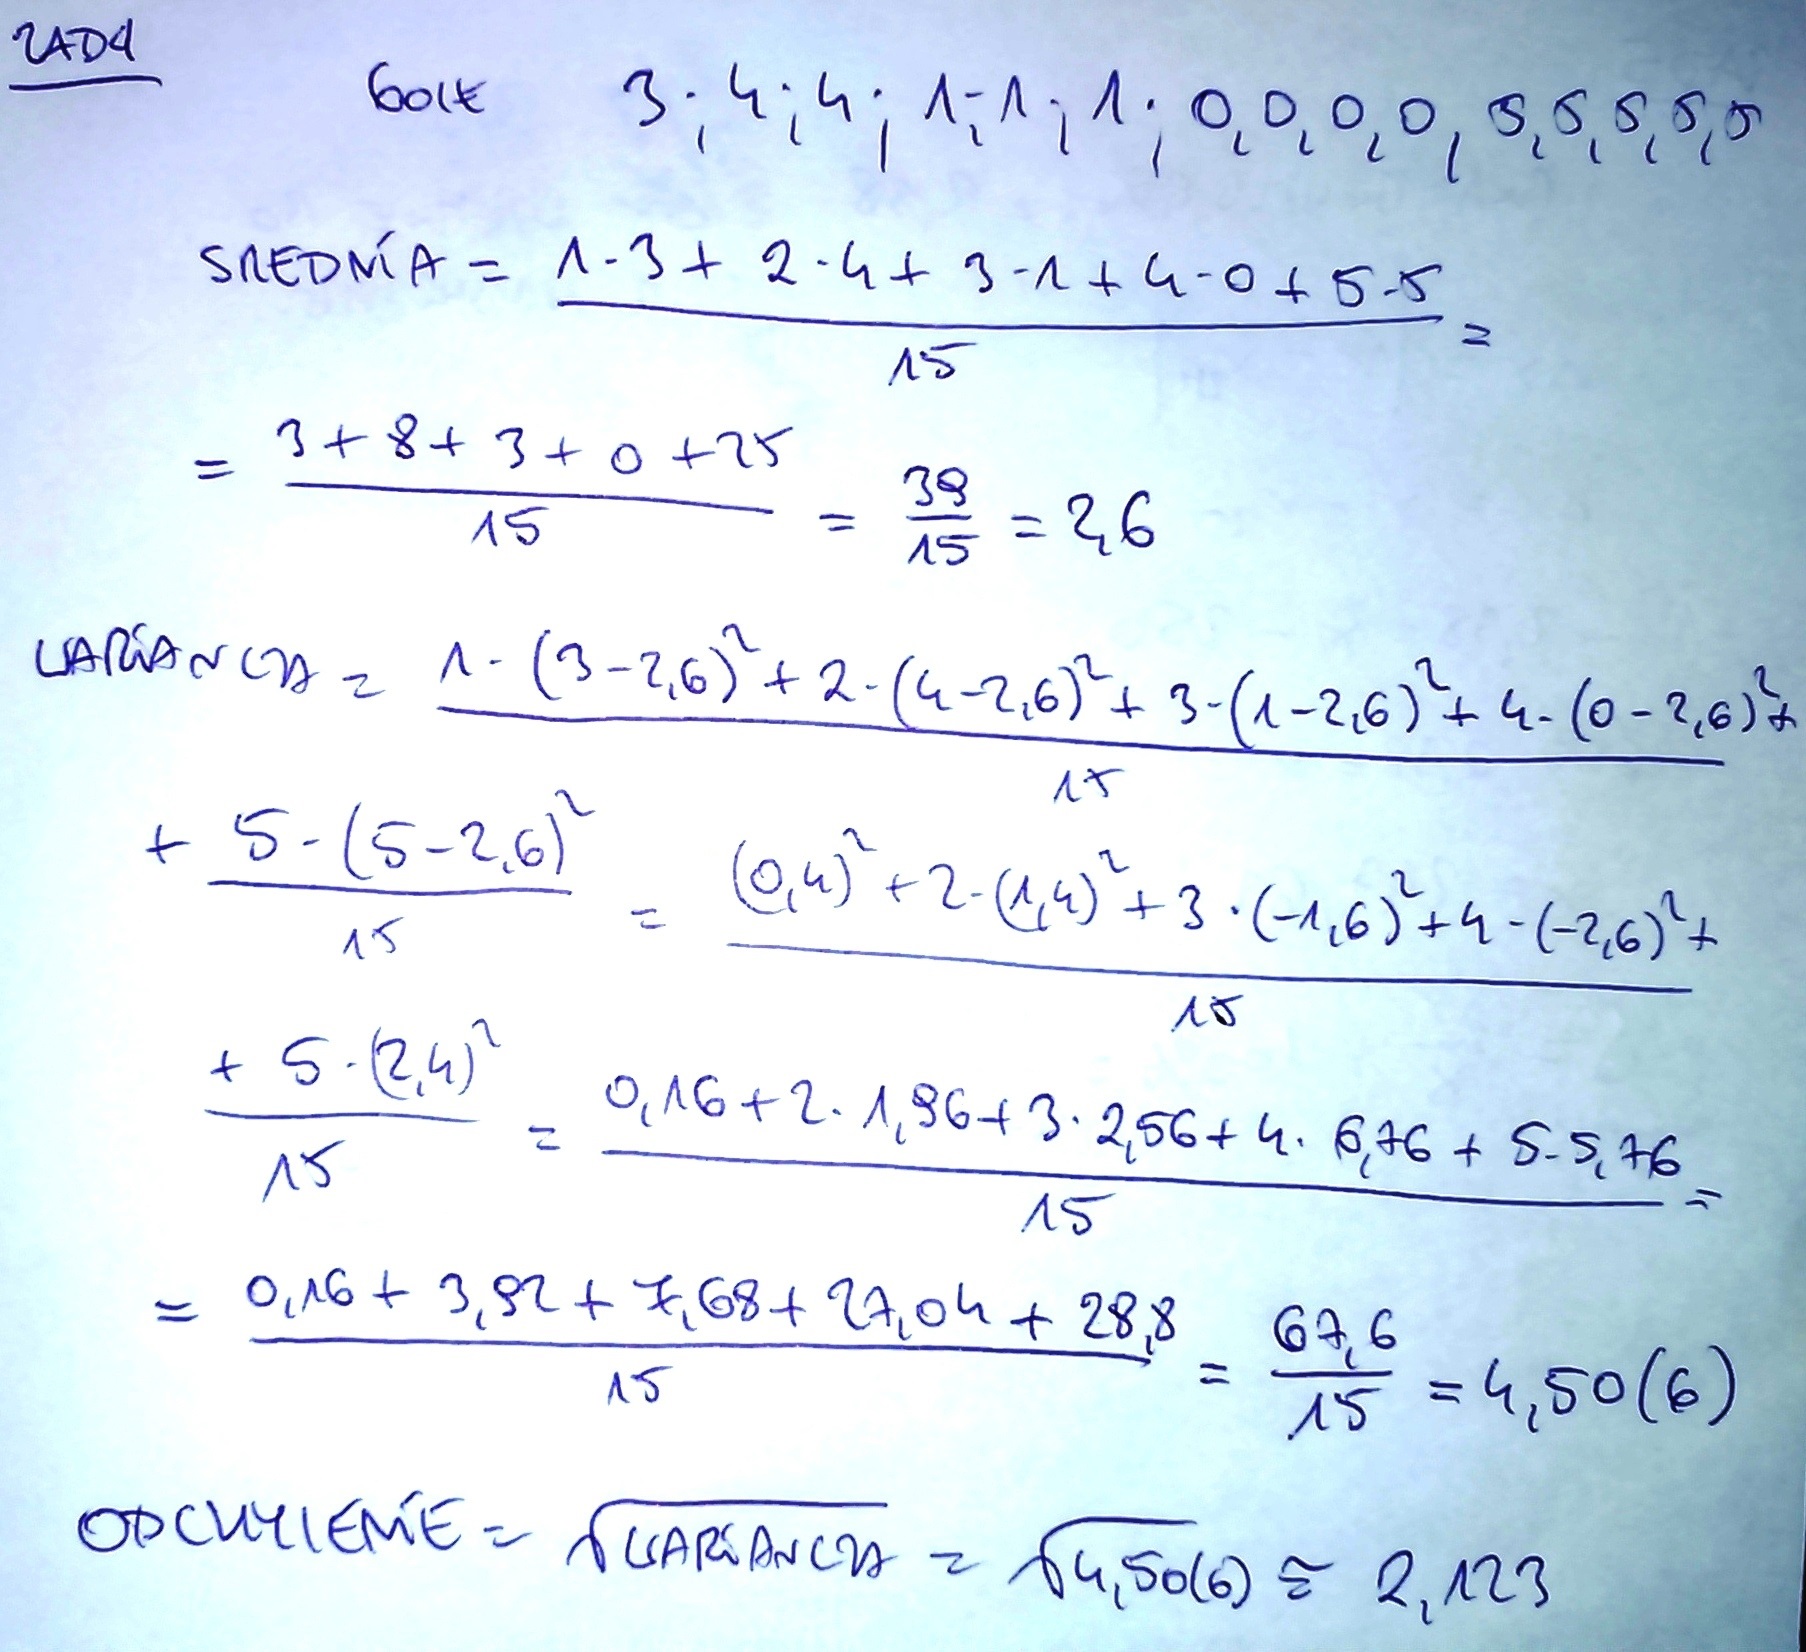 ZAD4
GOLE 3; 4; 4; 1; 1; 1; 0, 0, 0, 0, 5, 5, 5, 5, 5
SREDNIA = 1·3 + 2·4 + 3·1 + 4·0 + 5·5 / 15 =
= 3 + 8 + 3 + 0 + 25 / 15 = 39/15 = 2,6
WARIANCJA = 1·(3-2,6)² + 2·(4-2,6)² + 3·(1-2,6)² + 4·(0-2,6)² + / 15
+ 5·(5-2,6)² / 15 = (0,4)² + 2·(1,4)² + 3·(-1,6)² + 4·(-2,6)² + / 15
+ 5·(2,4)² / 15 = 0,16 + 2·1,96 + 3·2,56 + 4·6,76 + 5·5,76 / 15 =
= 0,16 + 3,92 + 7,68 + 27,04 + 28,8 / 15 = 67,6/15 = 4,50(6)
ODCHYLENIE = √WARIANCJA = √4,50(6) ≅ 2,123